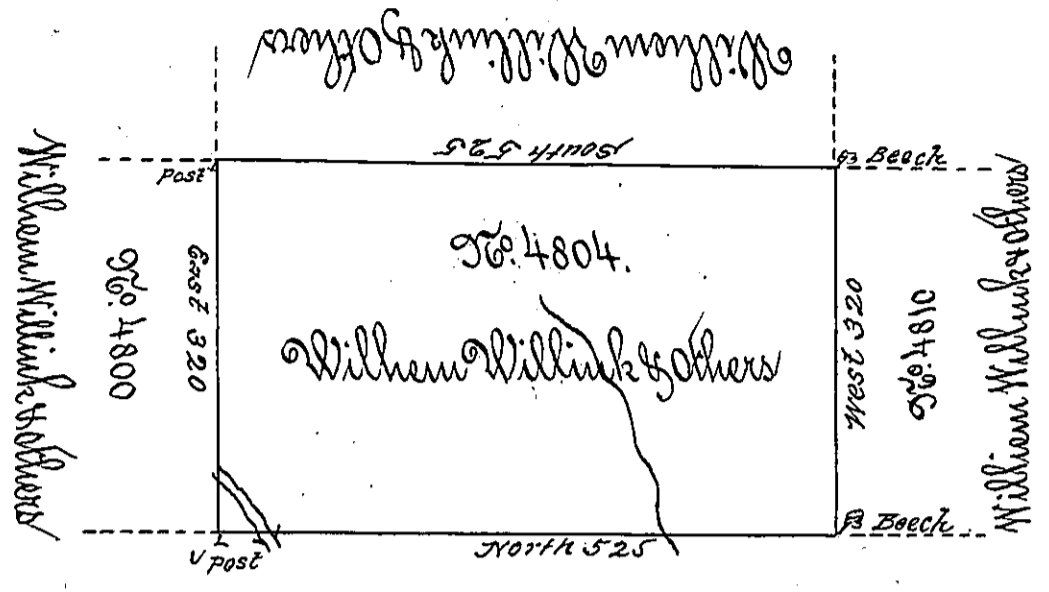 Wilhem Willink & Others
South 525
Post
Beech
No. 4804.
Wilhem Willink & others
East 320
No. 4800
Wilhem Willink & others
West 320
No. 4810
Wilhem Willink & others
Beech
Post
North 525